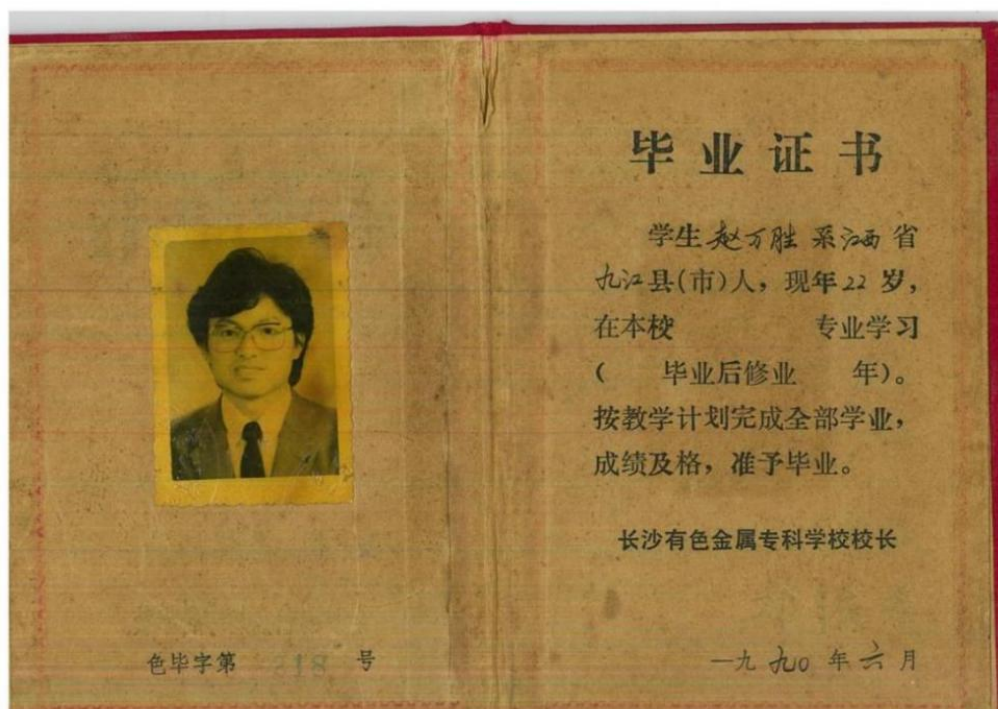 毕业证书
学生赵万胜系江西省
九江县(市)人，现年22岁，
在本校 专业学习
( 毕业后修业 年)。
按教学计划完成全部学业，
成绩及格，准予毕业。
长沙有色金属专科学校校长
一九九0年六月
色毕字第 号